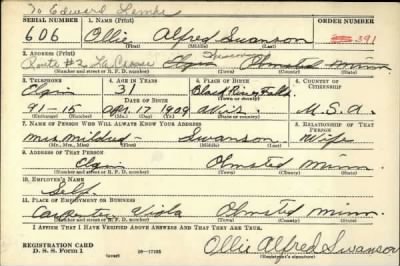 To Edward Lemke
SERIAL NUMBER 1. NAME (Print) ORDER NUMBER
606 Ollie Alfred Swanson 391
(First) (Middle) (Last)
2. ADDRESS (Print)
Route #2 La Crosse Elgin Olmsted Minn
(Number and street or R. F. D. number) (Town) (County) (State)
3. TELEPHONE 4. AGE IN YEARS 5. PLACE OF BIRTH 6. COUNTRY OF CITIZENSHIP
Elgin 31 Black River Falls
(Exchange) DATE OF BIRTH (Town or county)
91-15 Apr. 17 1909 Wis. U.S.A.
(Number) (Mo.) (Day) (Yr.) (State or country)
7. NAME OF PERSON WHO WILL ALWAYS KNOW YOUR ADDRESS 8. RELATIONSHIP OF THAT PERSON
Mrs Mildred - Swanson Wife
(Mr., Mrs., Miss) (First) (Middle) (Last)
9. ADDRESS OF THAT PERSON
Elgin Olmsted Minn
(Number and street or R. F. D. number) (Town) (County) (State)
10. EMPLOYER'S NAME
Self
11. PLACE OF EMPLOYMENT OR BUSINESS
Carpenter Viola Olmsted Minn.
(Number and street or R. F. D. number) (Town) (County) (State)
I AFFIRM THAT I HAVE VERIFIED ABOVE ANSWERS AND THAT THEY ARE TRUE.
REGISTRATION CARD
D. S. S. Form 1 (over) Ollie Alfred Swanson
(Registrant's signature)